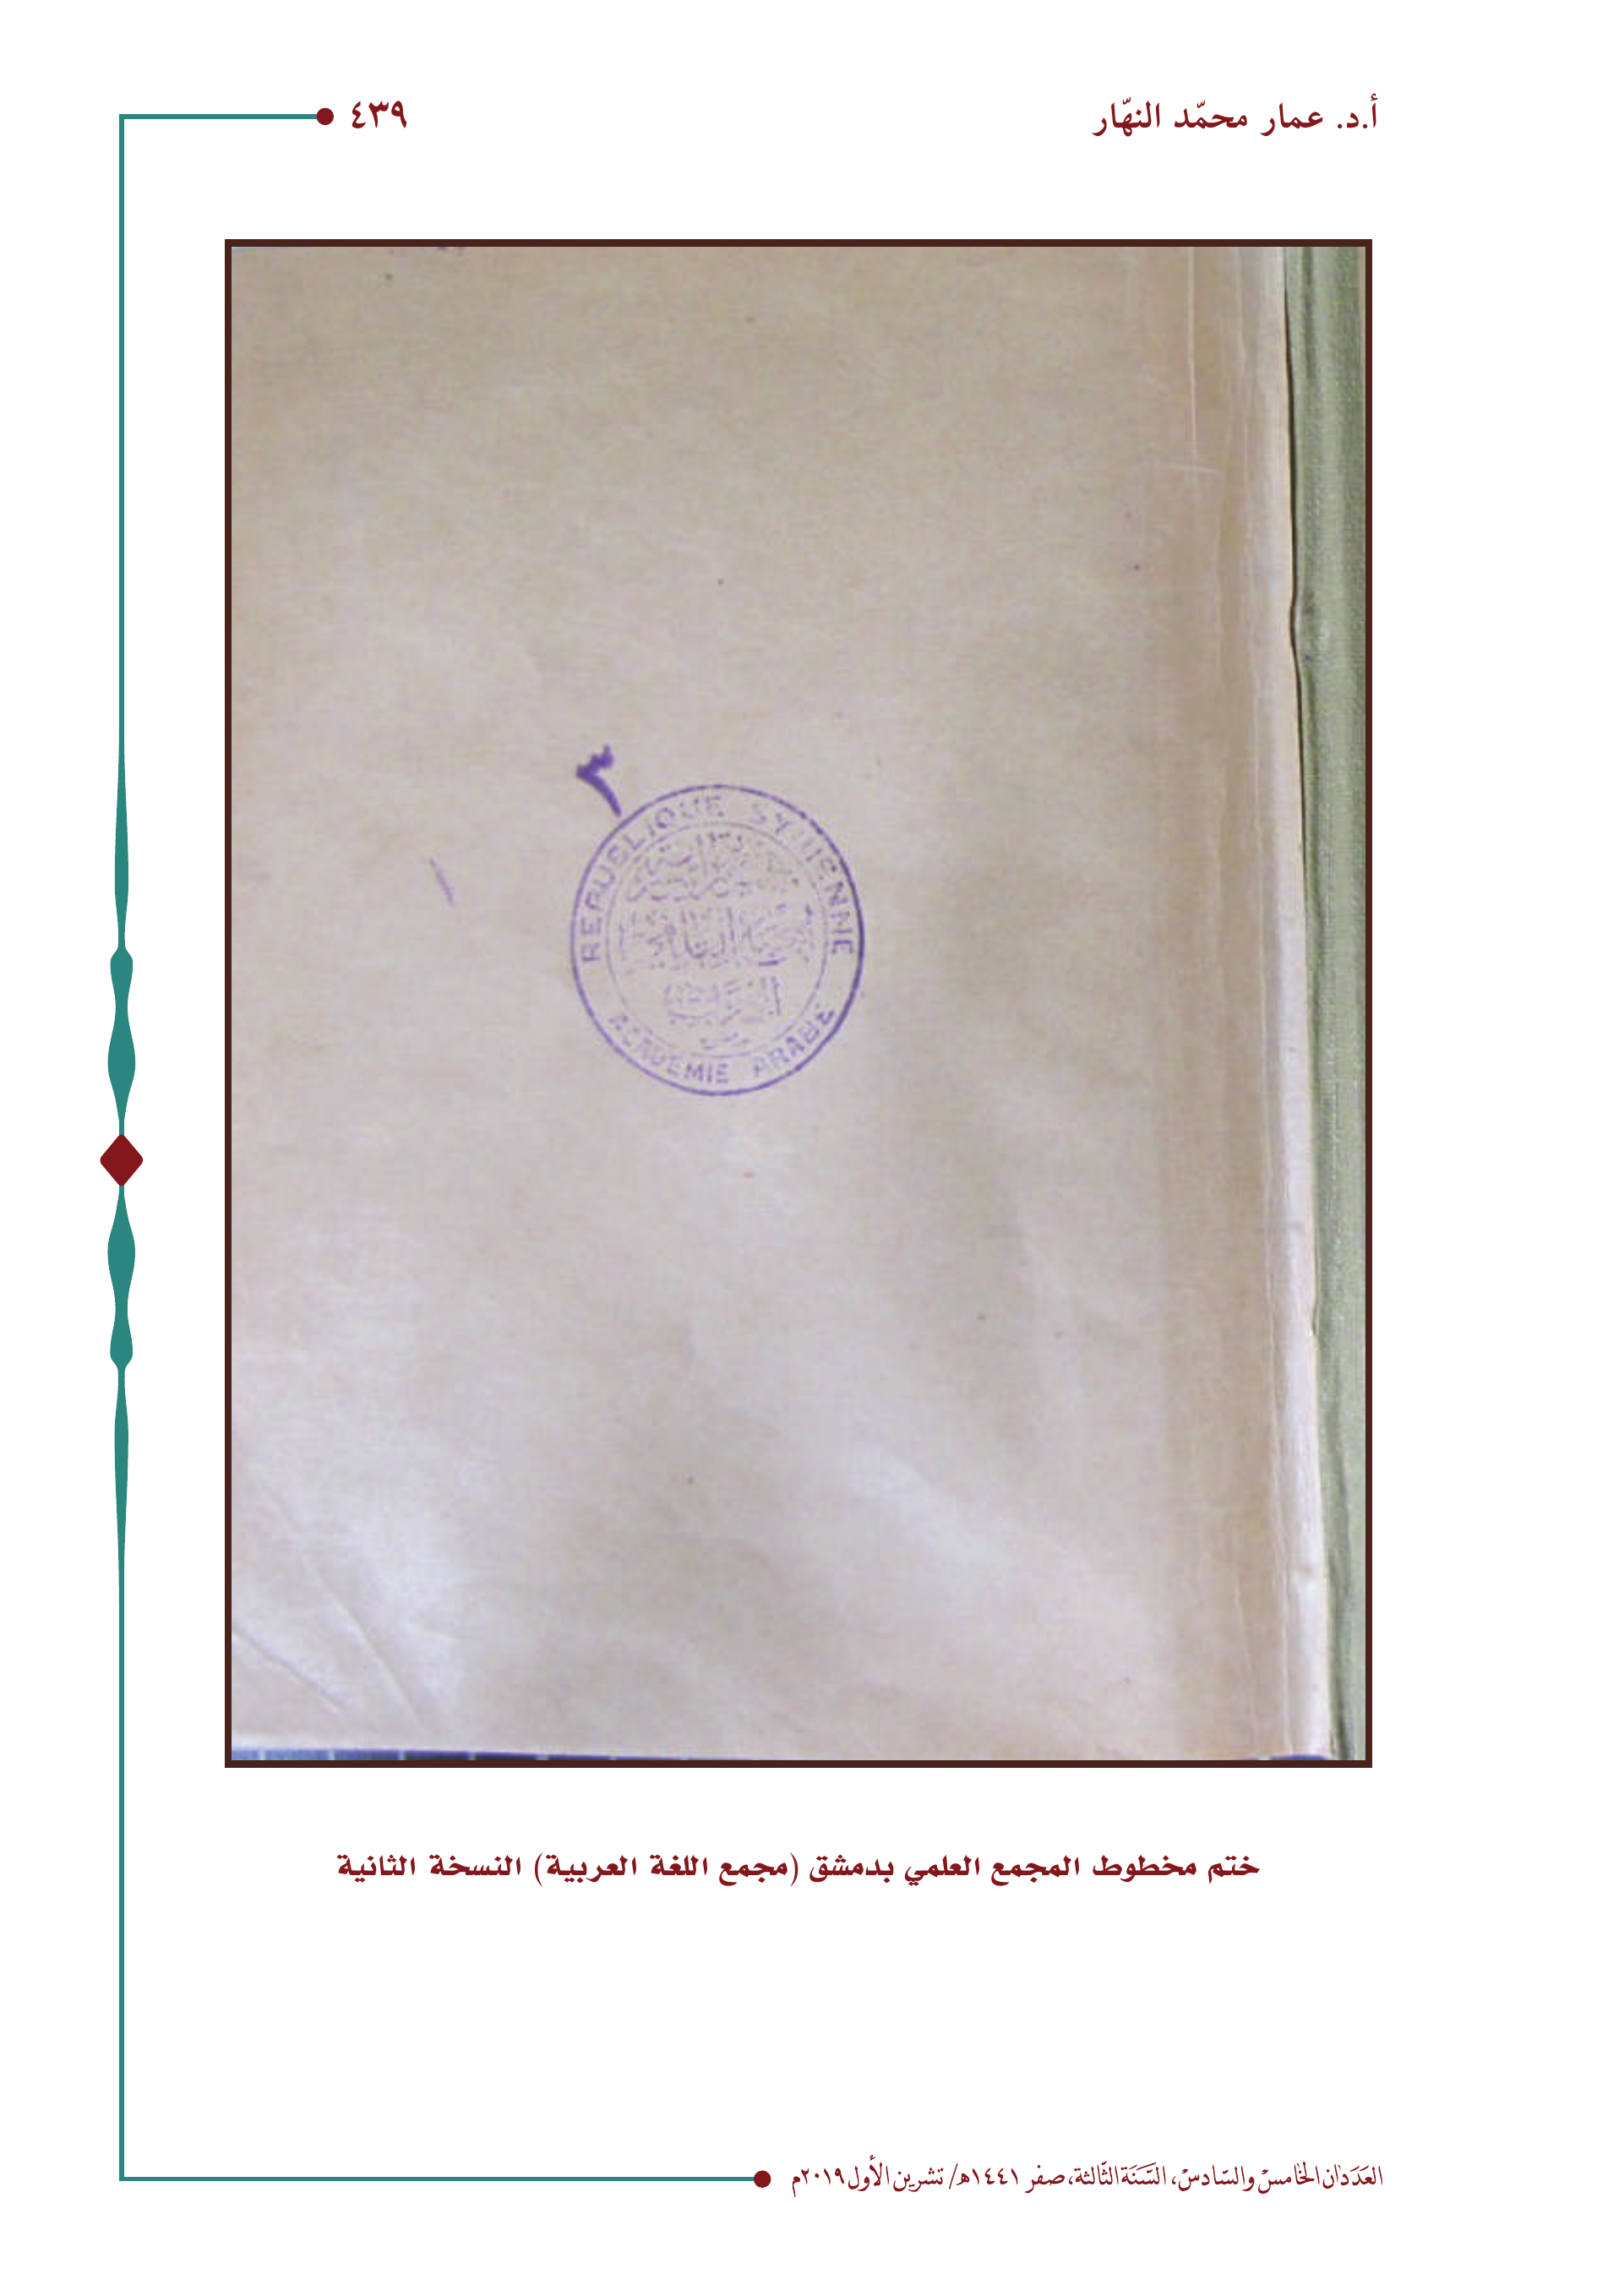 أ.د. عمار محمّد النهّار
٤٣٩
٣
REPUBLIQUE SYRIENNE
ACADEMIE ARABE
ختم مخطوط المجمع العلمي بدمشق (مجمع اللغة العربية) النسخة الثانية
العددان الخامس والسادس، السنة الثالثة، صفر ١٤٤١هـ/ تشرين الأول ٢٠١٩م